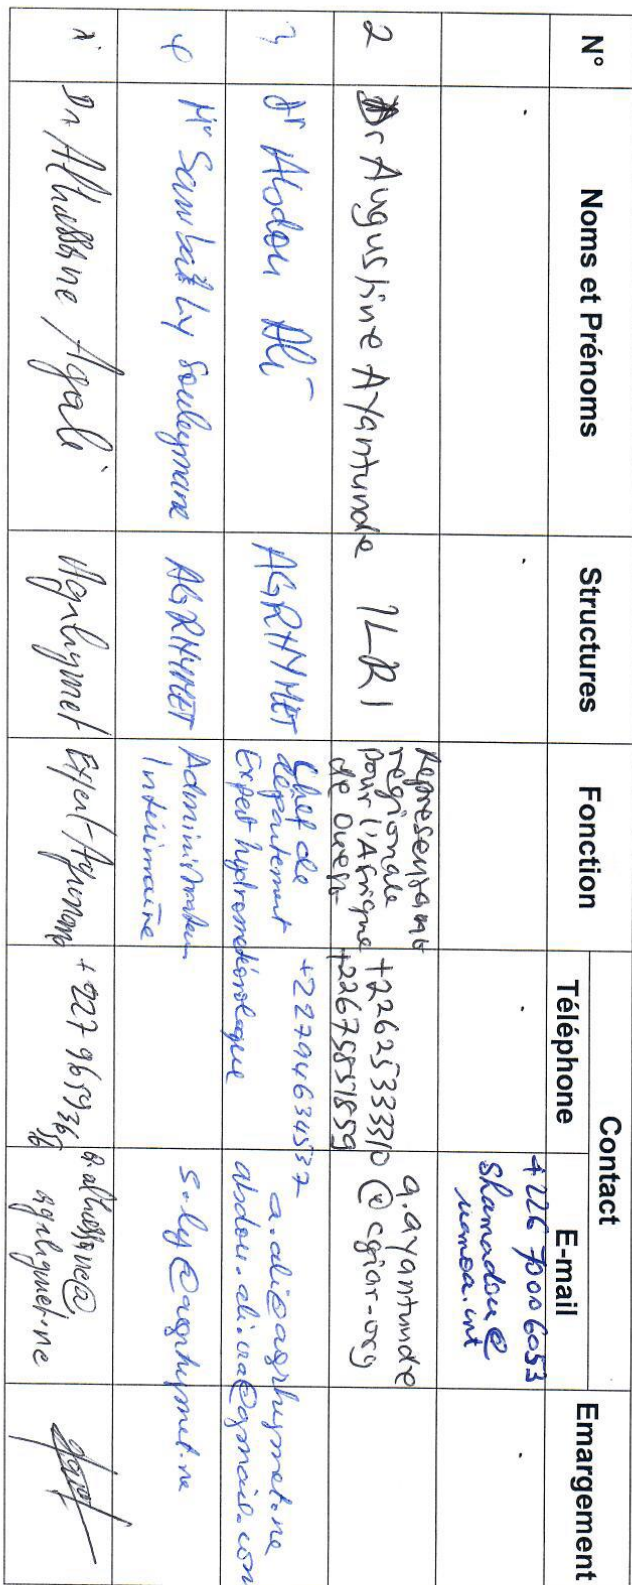 N° Noms et Prénoms Structures Fonction Contact Emargement
Téléphone E-mail
+226 70006053
shamadou@
uemoa.int
2 Dr Augustine Ayantunde ILRI
Representant
regionale
pour l'Afrique
de Ouest
+22625333310
+22675851859
a.ayantunde
@cgiar.org
3 Dr Abdou Ali AGRHYMET
Chef de
département
Expert hydrométéorologue
+22794634537
a.ali@agrhymet.ne
abdou.ali.ura@gmail.com
4 Mr Sambou Ly Souleymane AGRHYMET
Administrateur
Intérimaire
s.ly@agrhymet.ne
Dr Alhassane Agali Agrhymet Expert/Agronome
+227 965936
56
a.alhassane@
agrhymet.ne